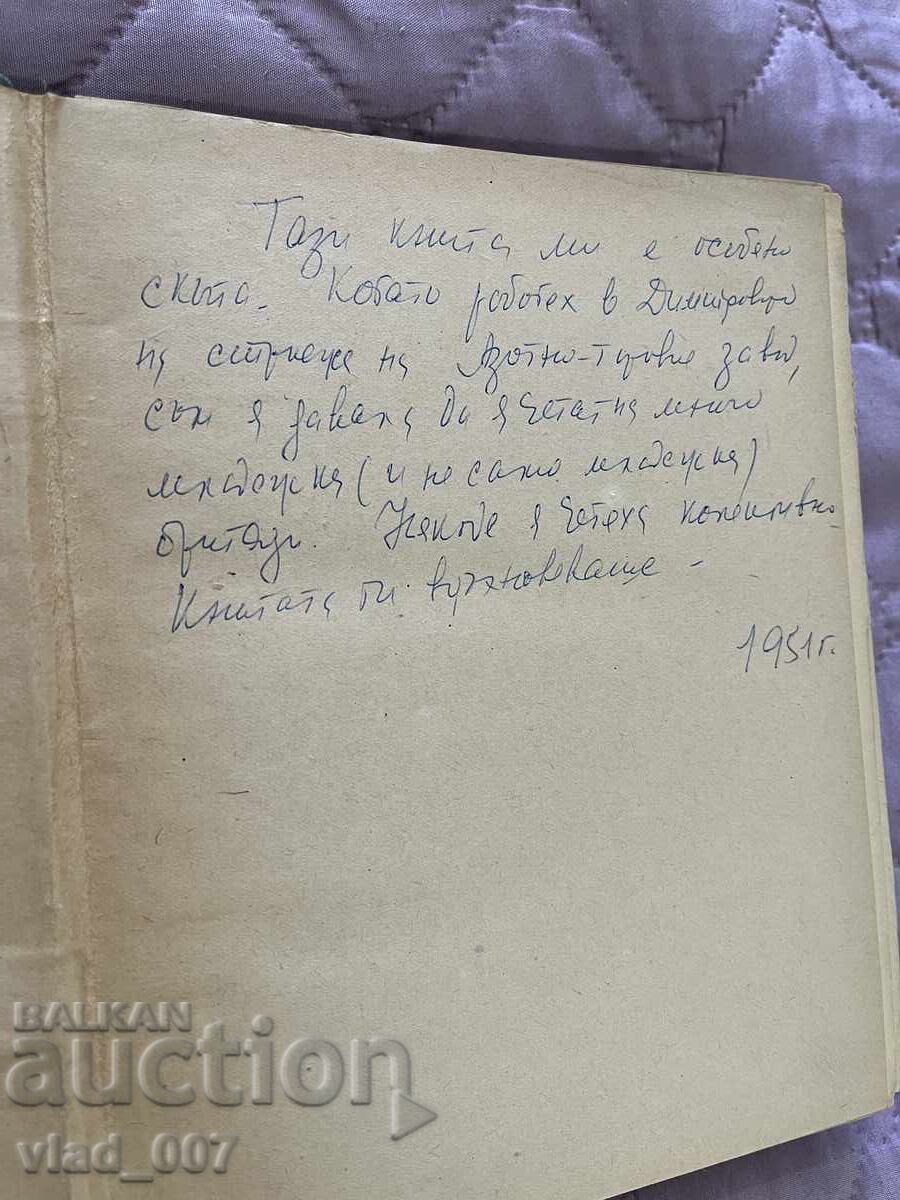 Тази книга ми е особено
скъпа. Когато работех в Димитровград
на строежа на Азотно-торовия завод,
съм я давала да я четат на много
младежки (и не само младежки)
бригади. Някъде я четяха колективно.
Книгата ги вдъхновяваше -
1951 г.
BALKAN
auction
vlad_007